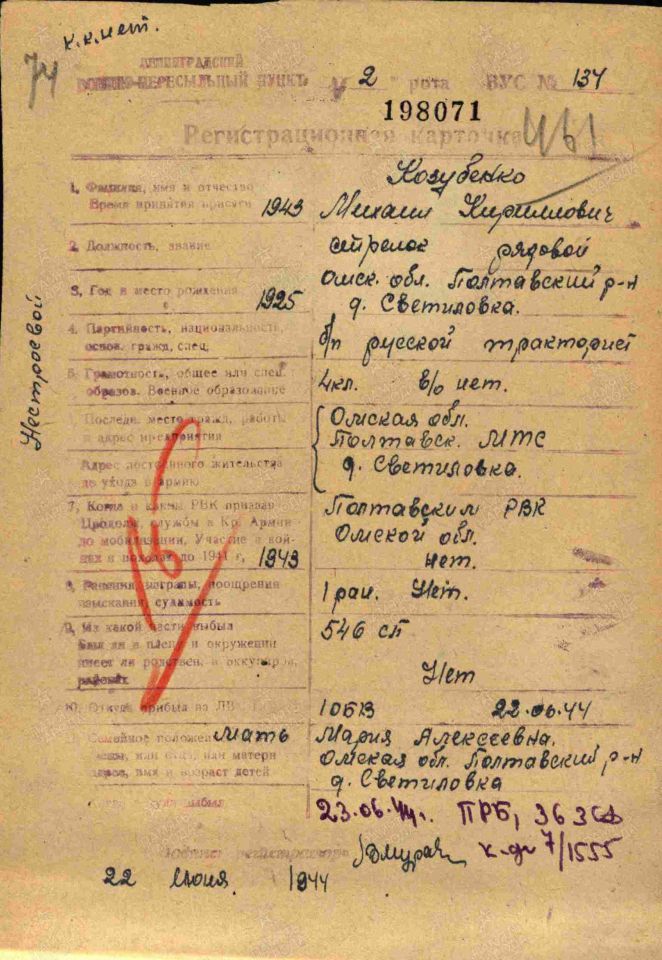 к.к. нет.
74
ЛЕНИНГРАДСКИЙ
ВОЕННО-ПЕРЕСЫЛЬНЫЙ ПУНКТЬ 2 рота ВУС № 134
198071
Регистрационная карточка
1. Фамилия, имя и отчество Козубенко
Время принятия присяги 1943 Михаил Кириллович
2. Должность, звание стрелок рядовой
3. Год и место рождения 1925 Омск. обл. Полтавский р-н
д. Светиловка.
4. Партийность, национальность, б/п русской тракторист
основ. гражд. спец.
5. Грамотность, общее или спец. 4 кл. в/о нет.
образов. Военное образование
Последн. место гражд. работы Омская обл.
и адрес предприятия Полтавск. МТС
Адрес постоянного жительства д. Светиловка.
до ухода в армию
7. Когда и каким РВК призван Полтавским РВК
Продолж. службы в Кр. Армии Омской обл.
до мобилизации. Участие в вой-
нах и походах до 1941 г. 1943 нет.
8. Ранения, награды, поощрения 1 ран. Нет.
взыскания, судимость
9. Из какой части выбыл 546 сп
был ли в плену и окружении
имеет ли родствен. в оккупиров. Нет
районах
10. Откуда прибыл на ЛВ 10БВ 22.06.44
Семейное положен. Мать Мария Алексеевна.
жены, или отца, или матери Омская обл. Полтавский р-н
адрес, имя и возраст детей д. Светиловка
23.06.44г. ПРБ, 36
к. ди 7/1555
22 июня 1944
Нестроевой